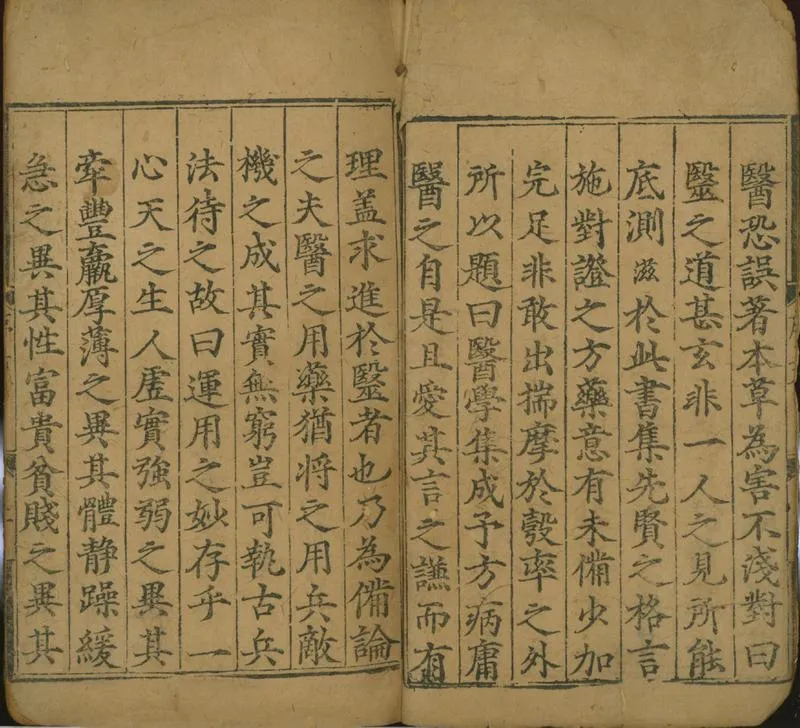 醫恐誤著本草為害不淺對曰
毉之道甚玄非一人之見所能
底測滋於此書集先賢之格言
施對證之方藥意有未備少加
完足非敢出揣摩於彀率之外
所以題曰醫學集成予方病庸
醫之自是且愛其言之謙而有
理盖求進於毉者也乃為備論
之夫醫之用藥猶將之用兵敵
機之成其實無窮豈可執古兵
法待之故曰運用之妙存乎一
心天之生人虗實強弱之異其
牽豐羸厚薄之異其體静躁緩
急之異其性富貴貧賤之異其